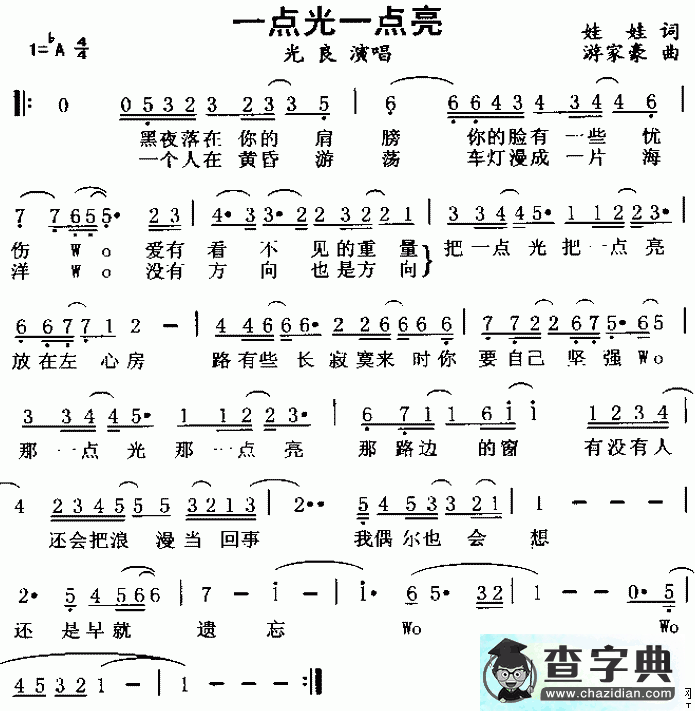 一点光一点亮
1=♭A 4/4
光 良 演唱
娃 娃 词
游家豪 曲
0 0532 3 23 3 5 | 6 6643 4 34 4 6 |
黑夜落在 你的 肩 膀 你的脸有 一些 忧
一个人在 黄昏 游 荡 车灯漫成 一片 海
7 7655· 23 | 4·33·2 2 3221 | 3345· 1 1223· |
伤 Wo 爱有 看 不 见的重量 把一点光把一点亮
洋 Wo 没有 方 向 也是方向
6 6771 2 - | 4 4666· 22666 6 | 7 7 22675· 65 |
放在左 心房 路有些长寂寞来 时你 要自己 坚强Wo
3 3445· 1 1223· | 6 711 6i i 1234 |
那 一点 光 那 一点 亮 那 路边 的窗 有没有人
4 23455 5 3213 | 2·· 545 3 321 | 1 - - - |
还会把浪 漫当 回事 我偶尔也 会 想
2· 5 4566 6 | 7 - i - | i· 65· 32 | 1 - - 0·5 |
还 是早就 遗 忘 Wo Wo
45321 - | 1 - - - :‖
查字典
www.chazidian.com